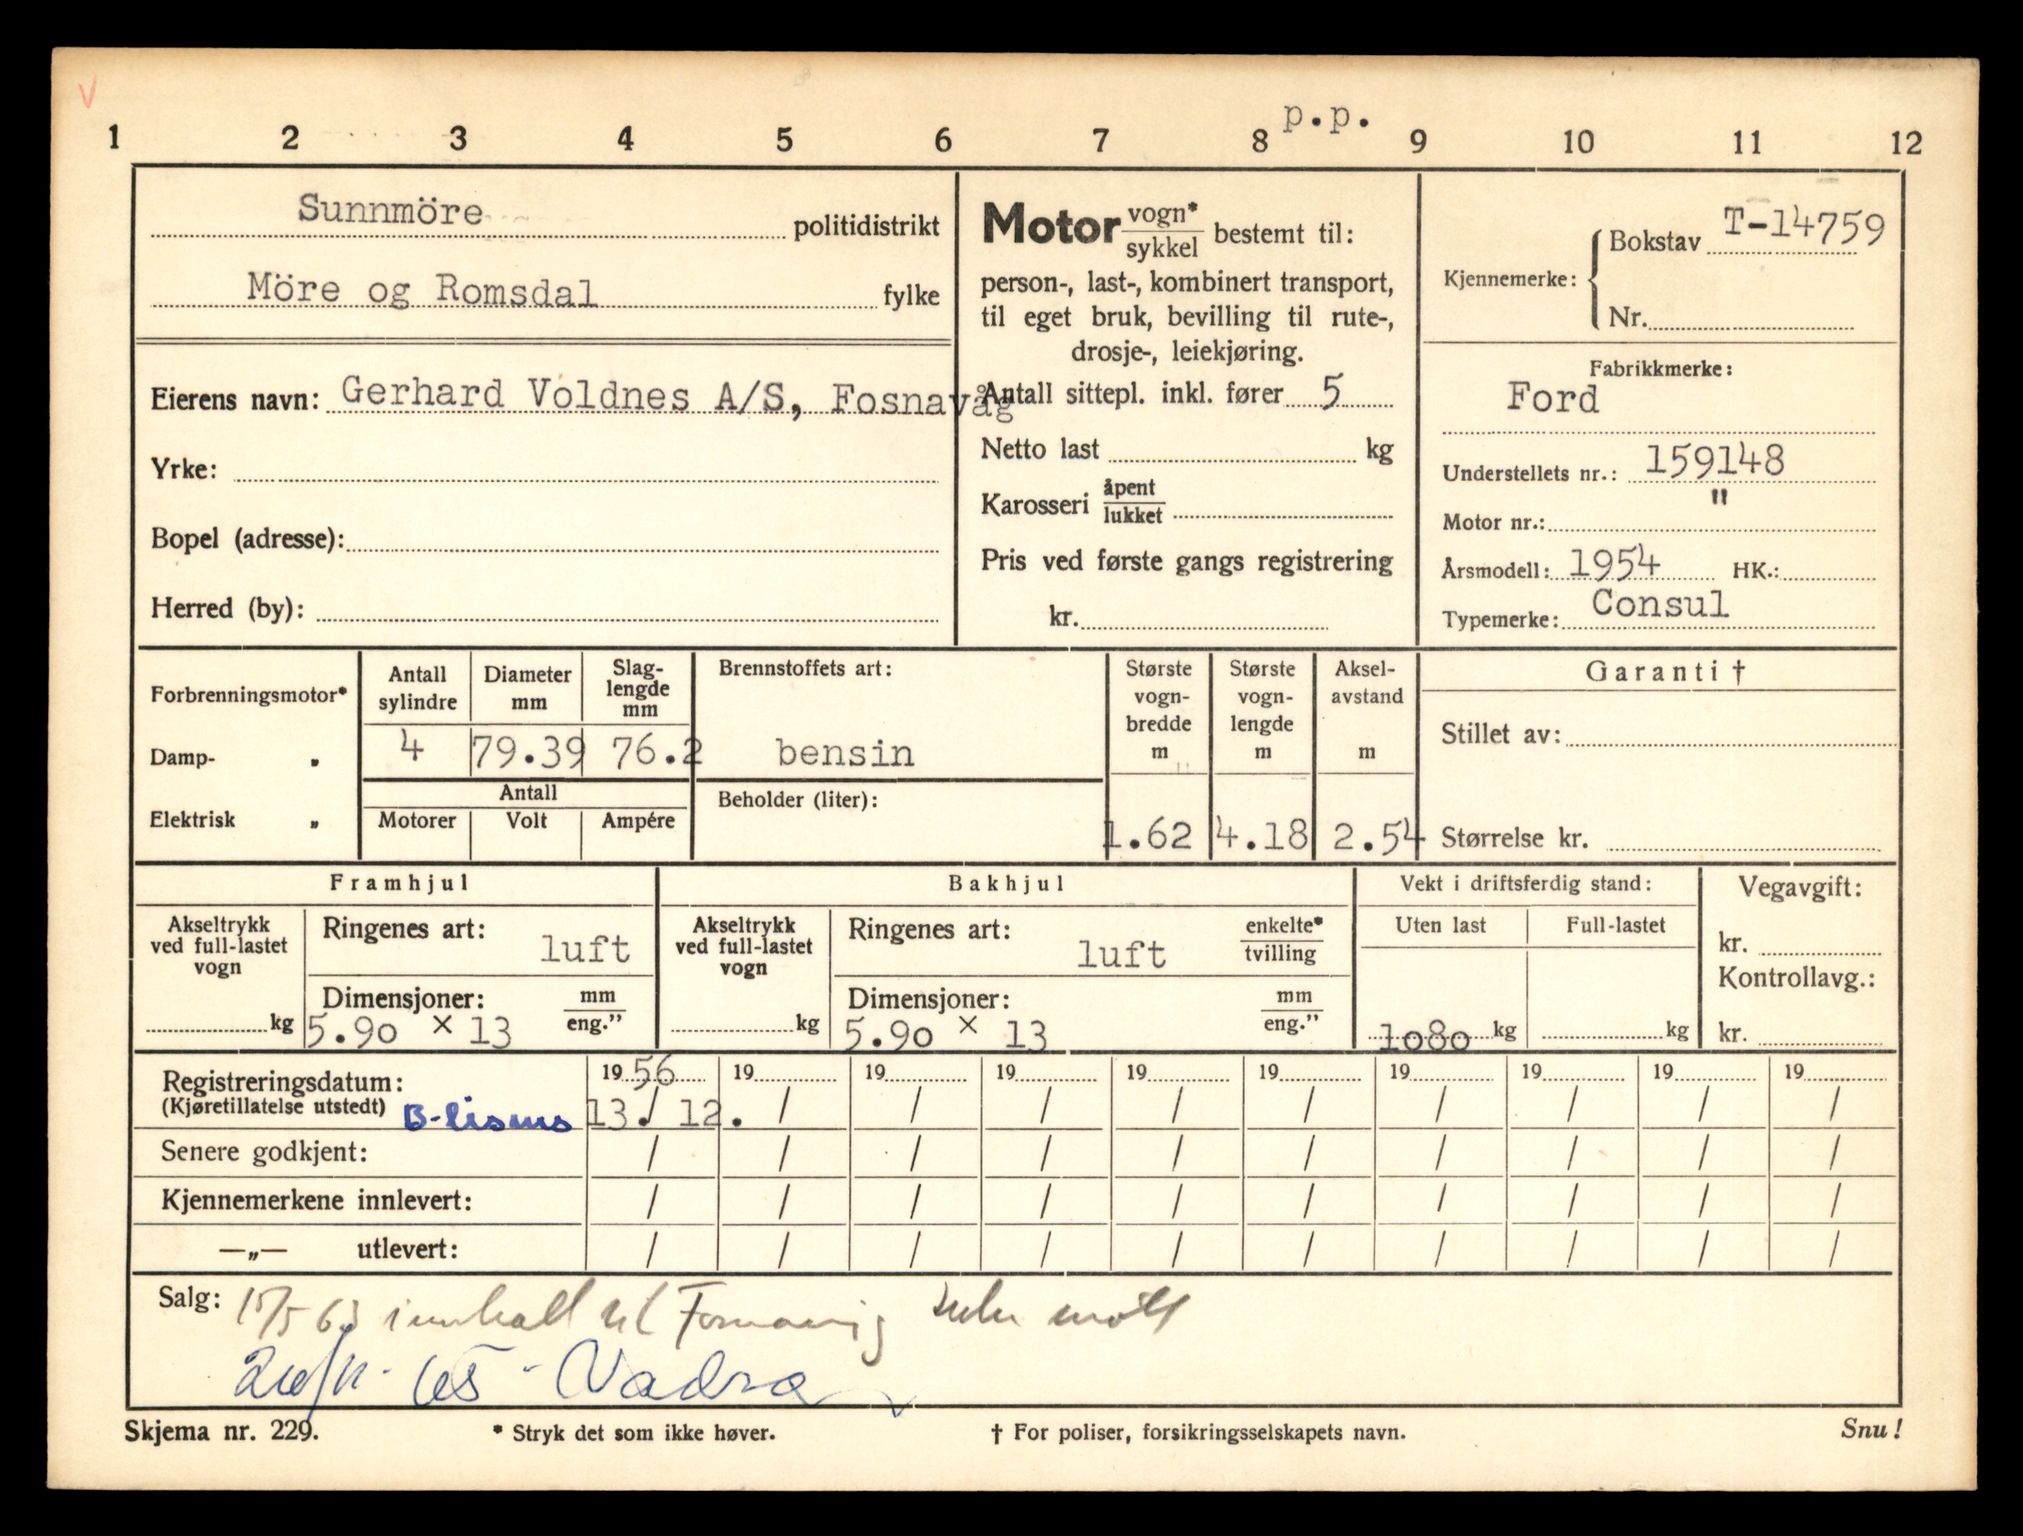 V
p.p.
1 2 3 4 5 6 7 8 9 10 11 12
Sunnmöre politidistrikt
Möre og Romsdal fylke
Eierens navn: Gerhard Voldnes A/S, Fosnavåg
Yrke:
Bopel (adresse):
Herred (by):
Motor vogn* / sykkel bestemt til:
person-, last-, kombinert transport,
til eget bruk, bevilling til rute-,
drosje-, leiekjøring.
Antall sittepl. inkl. fører 5
Netto last kg
Karosseri åpent / lukket
Pris ved første gangs registrering
kr.
Kjennemerke: Bokstav T-14759
Nr.
Fabrikkmerke:
Ford
Understellets nr.: 159148
Motor nr.: "
Årsmodell: 1954 HK.:
Typemerke: Consul
Forbrenningsmotor*
Damp- „
Elektrisk „
Antall sylindre
4
Diameter mm
79.39
Slag-
lengde
mm
76.2
Antall
Motorer Volt Ampére
Brennstoffets art:
bensin
Beholder (liter):
Største
vogn-
bredde
m
1.62
Største
vogn-
lengde
m
4.18
Aksel-
avstand
m
2.54
Garanti †
Stillet av:
Størrelse kr.
Framhjul
Akseltrykk
ved full-lastet
vogn
kg
Ringenes art:
luft
Dimensjoner: mm / eng.”
5.90 × 13
Bakhjul
Akseltrykk
ved full-lastet
vogn
kg
Ringenes art: enkelte* / tvilling
luft
Dimensjoner: mm / eng.”
5.90 × 13
Vekt i driftsferdig stand:
Uten last Full-lastet
1080 kg kg
Vegavgift:
kr.
Kontrollavg.:
kr.
Registreringsdatum: 19 56 19 19 19 19 19 19 19 19 19
(Kjøretillatelse utstedt) B-lisens 13. / 12. / / / / / / / / /
Senere godkjent: / / / / / / / / / /
Kjennemerkene innlevert: / / / / / / / / / /
—„— utlevert: / / / / / / / / / /
Salg: 15/5 63 til
20/11-65 -
Skjema nr. 229. * Stryk det som ikke høver. † For poliser, forsikringsselskapets navn. Snu!